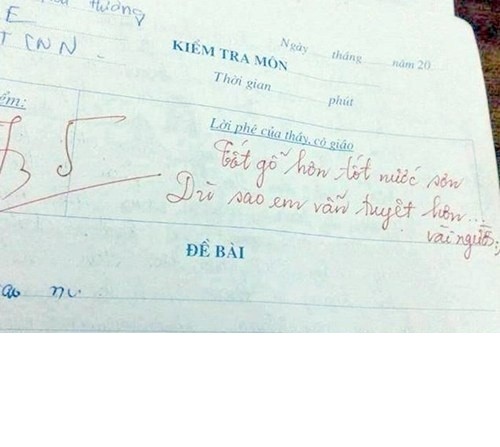 thương
E
T CNN.
KIỂM TRA MÔN
Ngày tháng năm 20
Thời gian phút
Lời phê của thầy, cô giáo
Tốt gỗ hơn tốt nước sơn
Dù sao em vẫn tuyệt hơn...
vài người;
5
ĐỀ BÀI